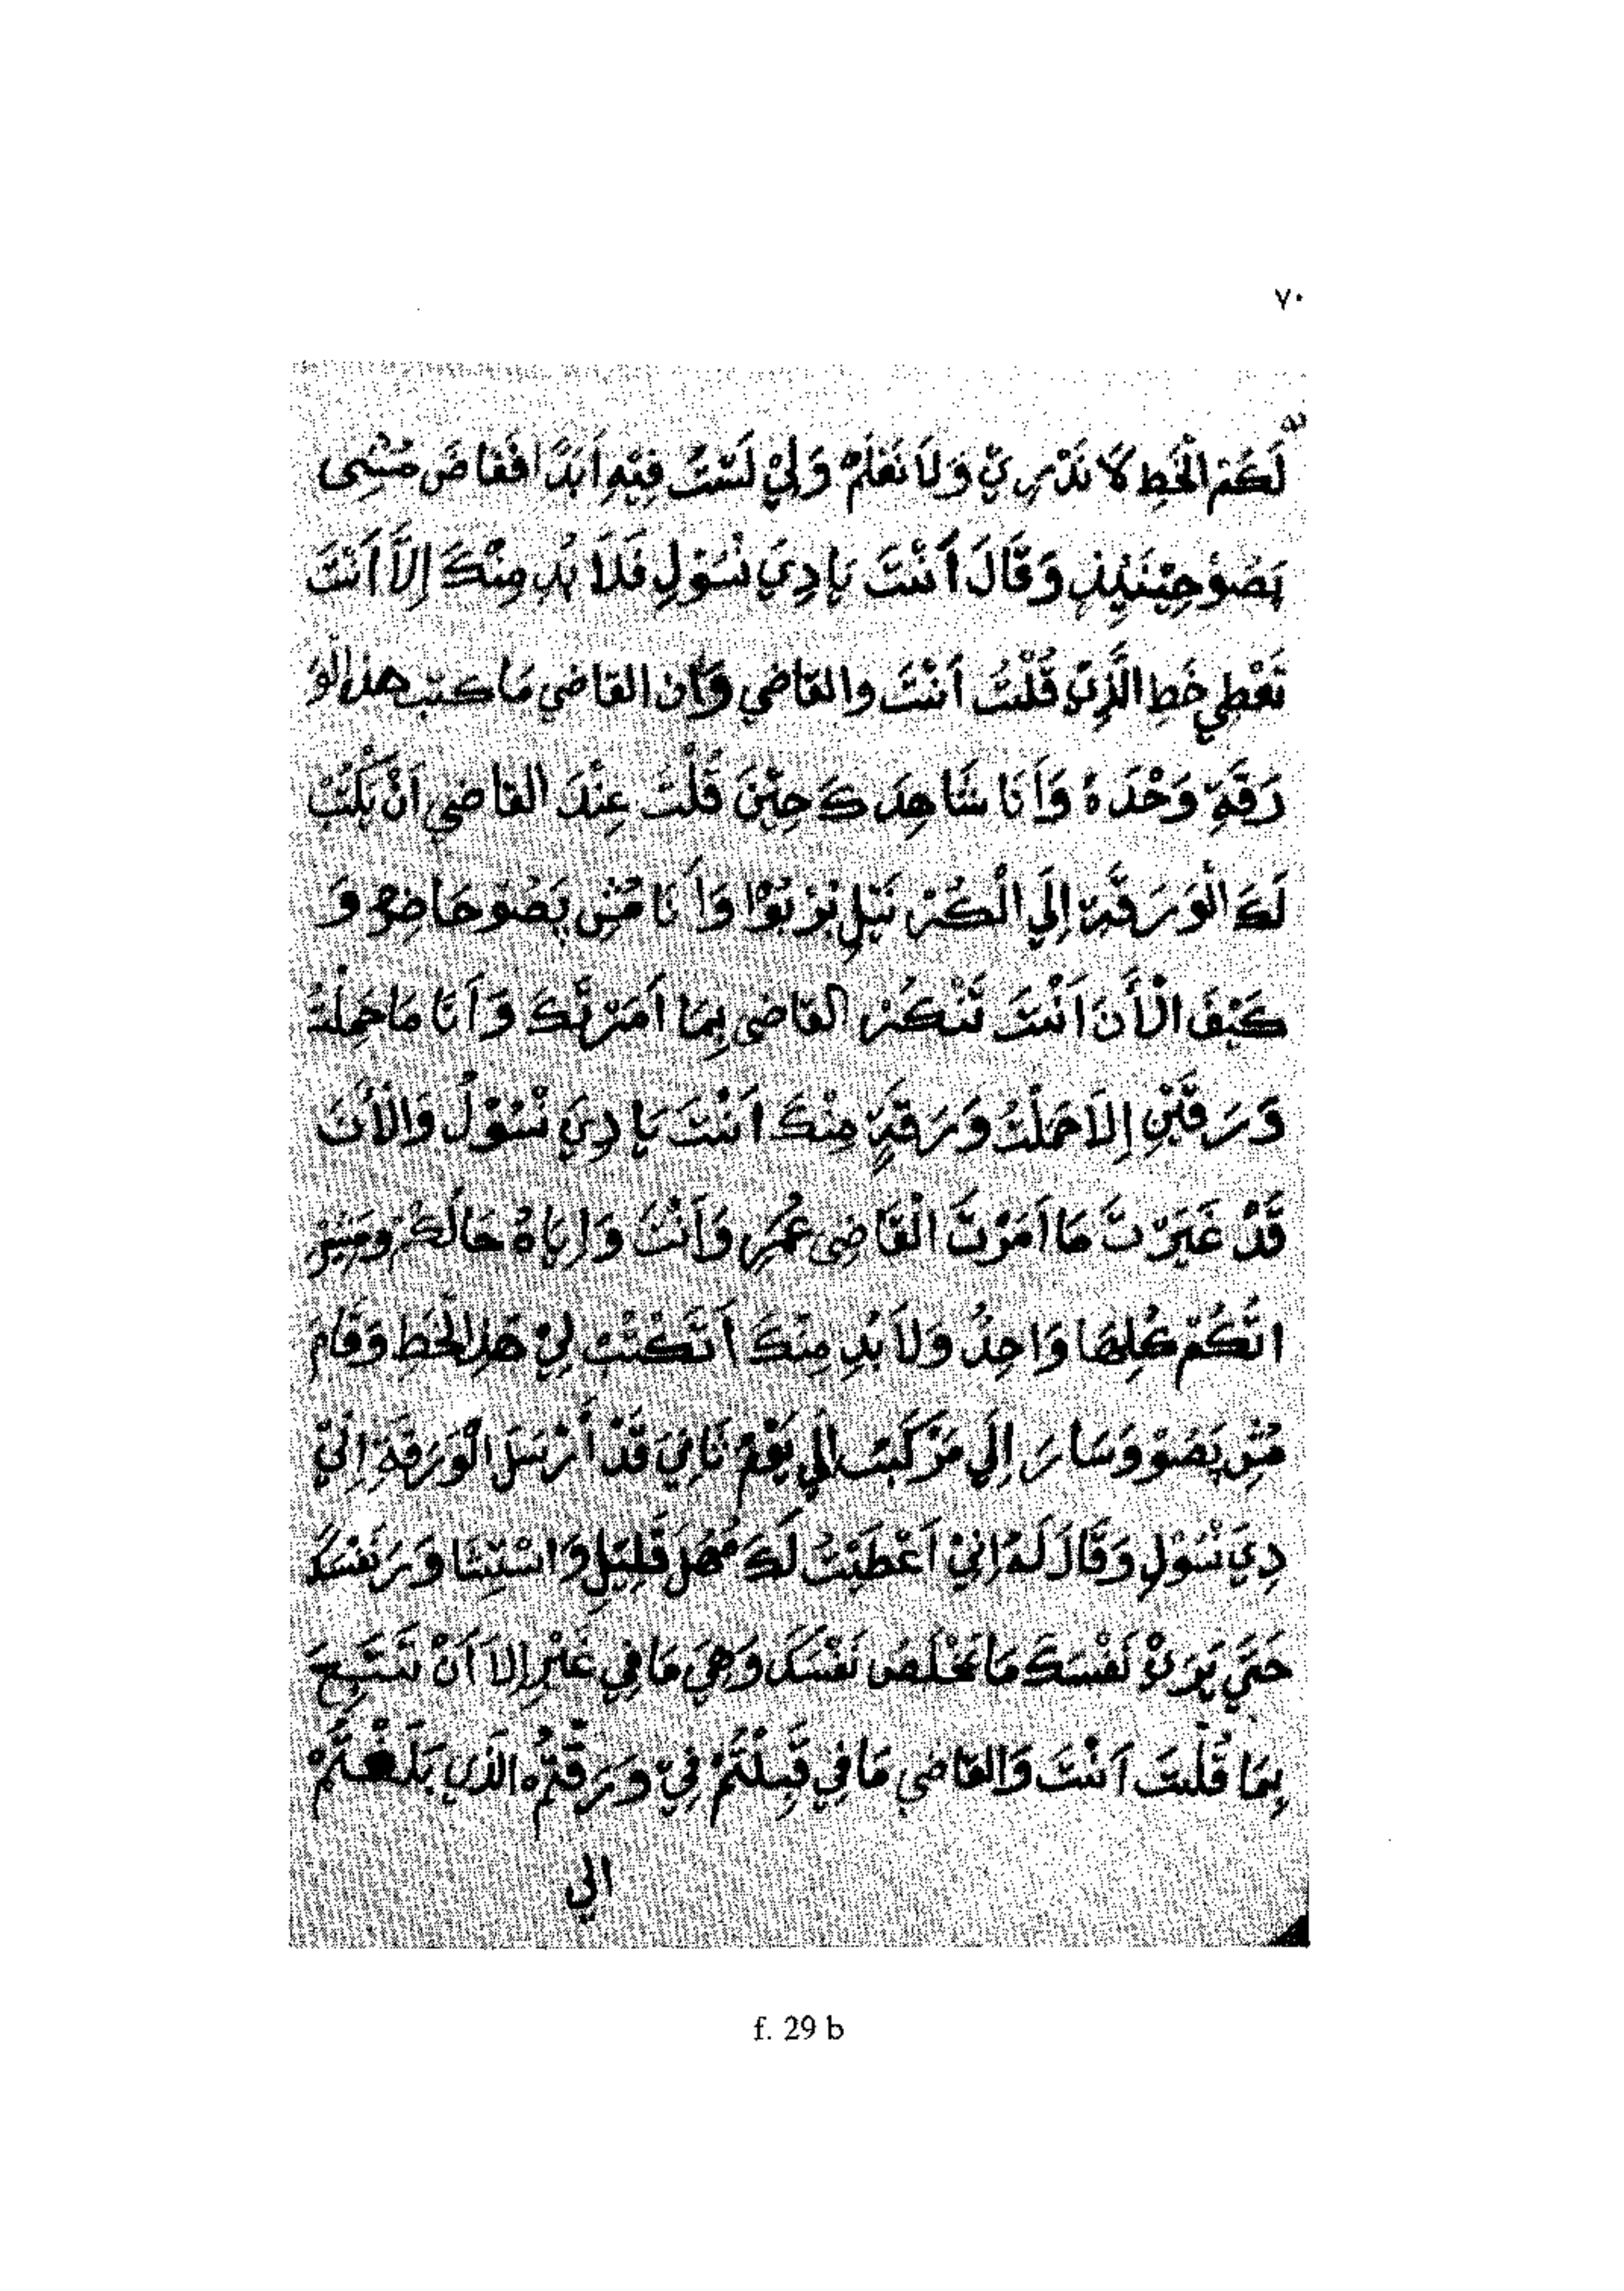 ٧٠
لَكُمْ الْخَطِ لاَ نَدْرِيْ وَلاَ نَعْلَمْ وَلِيْ لَسْتُ فِيْهِ اَبَدًا فَغَاضَ مُسْي
بَصُوْ حِيْنَئِذٍ وَقَالَ أَنْتَ يَا دِيَ نْسُوْلِ فَلَا بُدِ مِنْكَ إِلاَّ أَنْتَ
تَعْطِي خَطِ الَّذِيْ قُلْتُ اَنْتَ والقَاضِي وَأن القَاضِي مَا كتب هذا الْوَ
رَقَةِ وَحْدَهُ وَاَنَا شَاهِدَكَ حِيْنَ قُلْتَ عِنْدَ القاضِي اَنْ يَكْتُبْ
لَكَ الْوَرَقَةِ إِلَي الْكُرْنَيْلِ بْرْبُوْا وَاَنَا مُسْي بَصُوْ حَاضِرْ وَ
كَيْفَ الْأَنَ اَنْتَ تَنْكُرْ القاضي بِمَا اَمَرْتُكَ وَاَنَا مَا حَمِلْتُ
وَرَقَتَيْنِ إِلاَ حَمَلْتُ وَرَقَةٍ مِنْكَ اَنْتَ يَا دِيَ نْسُوْلُ وَالْأَنَ
قَدْ غَيَرْتَ مَا اَمَرْتَ الْقَاضِي عُمَرِ وَاَنْتَ وَاِيَاهُ حَالَكُمْ وَمَشِوْرِ
اتُّكُمْ كُلِهَا وَاحِدُ وَلاَ بُدِ مِنْكَ اَنْ تَكْتُبْ لِيْ هَذِا الْخَطِ وَقَامَ
مُسْي بَصُوْ وَسَارَ إِلَي مَرْكَبِ الي يَوْمْ ثَانِيَ قَدْ أَرْسَلَ الْوَرَقَةِ اِلَيْ
دِيَ نْسُوْلِ وَقَالَ لَهُ اِنِيْ اَعْطَيْتُ لَكَ مُهْلَ قَلِيْلِ وَاسْتِيْشَا وَرَ نَفْسَكَ
حَتَّي يَرَيْ نَفْسَكَ مَا تَخْلَصُ نَفْسَكَ وَهِيَ مَا فِي غَيْرِ إِلاَ اَنْ تَسْتَبِحَ
بِمَا قُلْتَ اَنْتَ وَالقاضي مَا فِي قَبِلْتُمْ فِيْ وَرَقَتُمْ الذي بَلَغْتُمْ
الي
f. 29 b